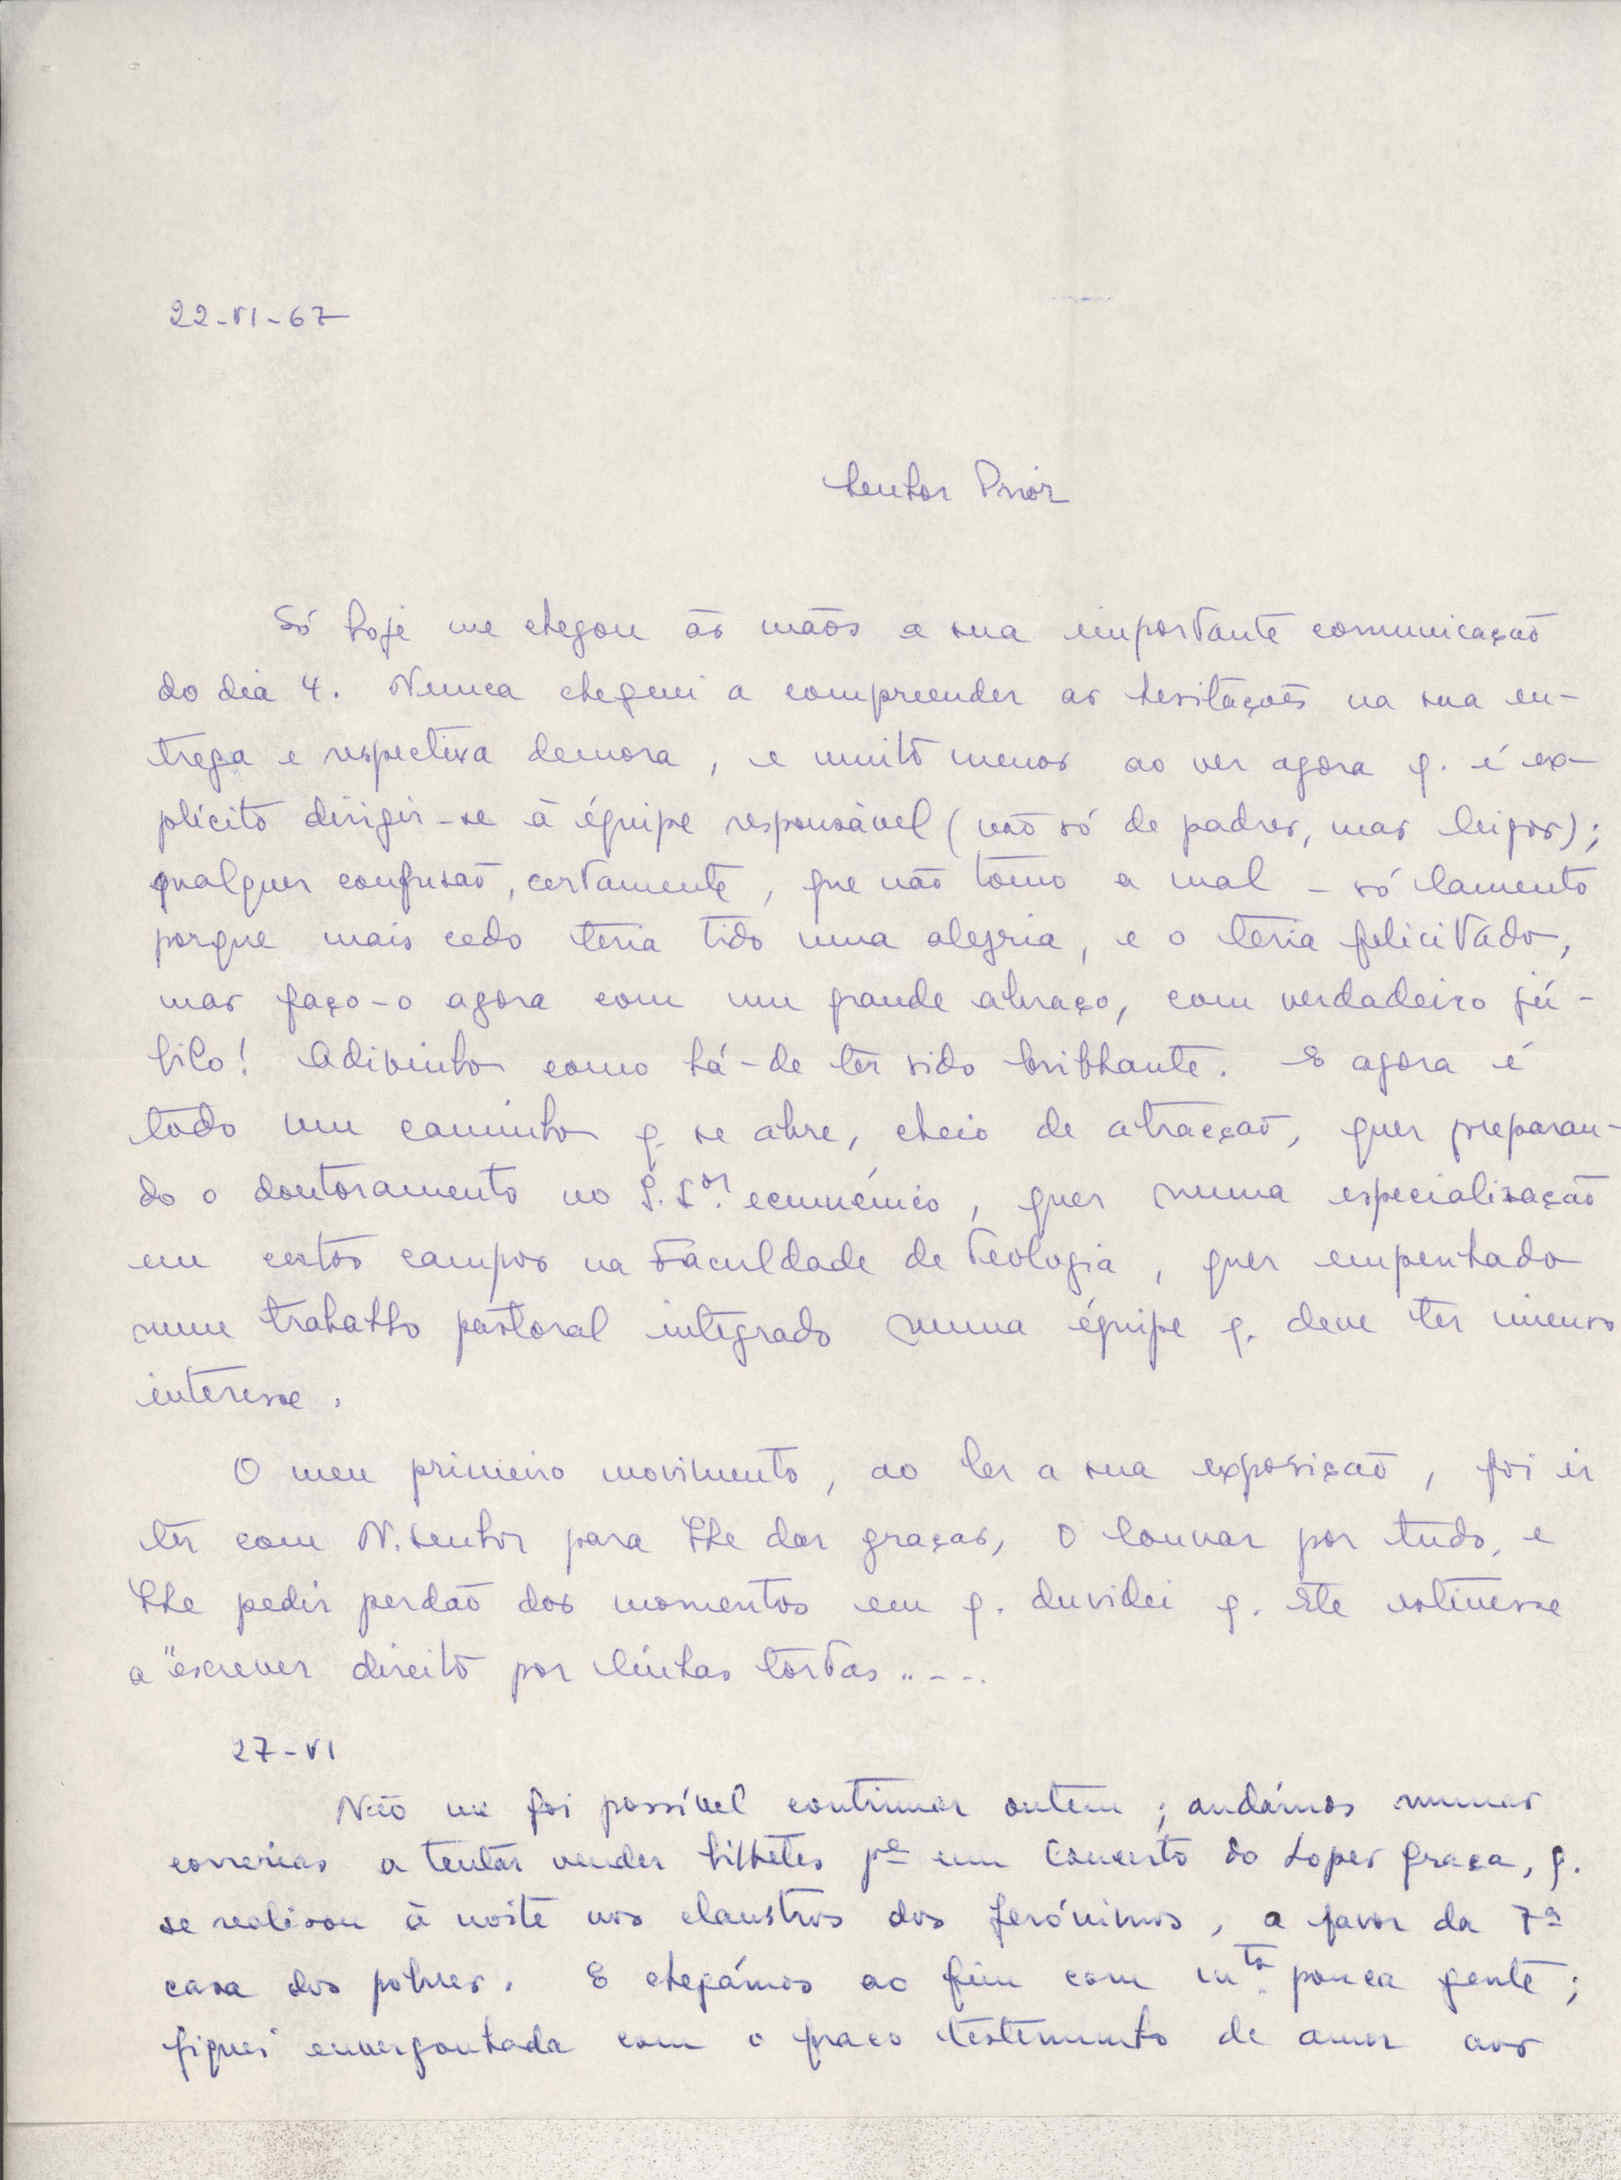 22-VI-67
Senhor Prior
Só hoje me chegou às mãos a sua importante comunicação
do dia 4. Nunca cheguei a compreender as hesitações na sua en-
trega e respectiva demora, e muito menos ao ver agora q. é ex-
plícito dirigir-se à équipe responsável (não só de padres, mas leigos);
qualquer confusão, certamente, que não tomo a mal - só lamento
porque mais cedo teria tido uma alegria, e o teria felicitado,
mas faço-o agora com um grande abraço, com verdadeiro jú-
bilo! Adivinho como há-de ter sido brilhante. E agora é
todo um caminho q. se abre, cheio de atracção, quer preparan-
do o doutoramento no ecuménico, quer numa especialização
em certos campos na Faculdade de Teologia, quer empenhado
num trabalho pastoral integrado numa équipe q. deve ter imenso
interesse.
O meu primeiro movimento, ao ler a sua exposição, foi ir
ter com N. Senhor para Lhe dar graças, O louvar por tudo, e
Lhe pedir perdão dos momentos em q. duvidei q. Ele estivesse
a "escrever direito por linhas tortas"...
27-VI
Não me foi possível continuar ontem; andámos numas
correrias a tentar vender bilhetes pª um Concerto do Lopes Graça, q.
se realisou à noite nos claustros dos Jerónimos, a favor da 7ª
casa dos pobres. E chegámos ao fim com mta. pouca gente;
fiquei envergonhada com o fraco testemunho de amor aos